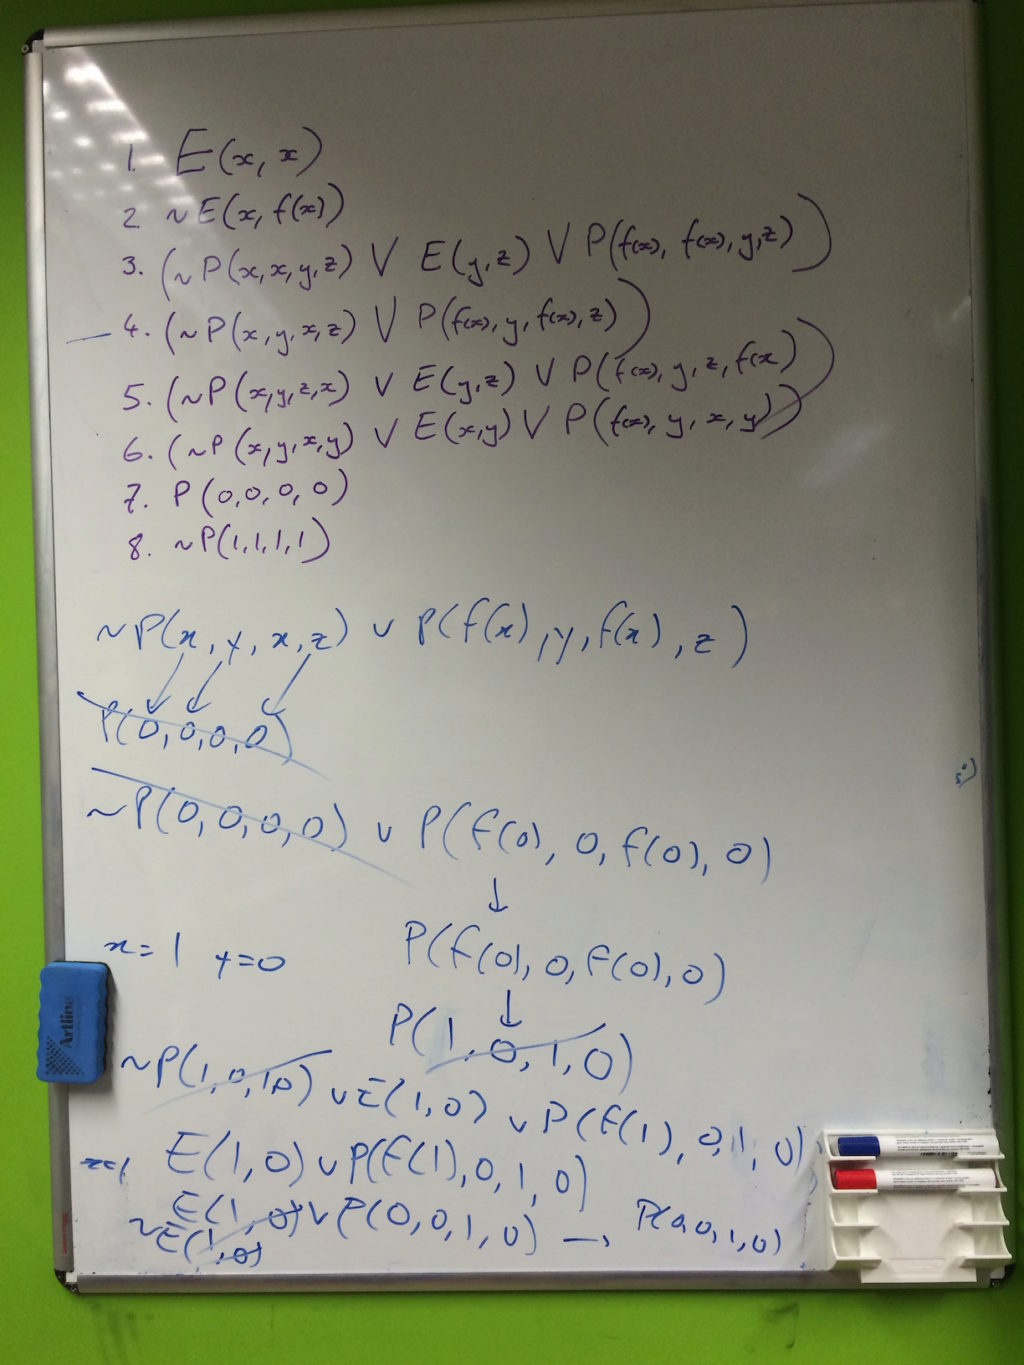 1. E(x, x)
2 ~E(x, f(x))
3. (~P(x,x,y,z) ∨ E(y,z) ∨ P(f(x), f(x), y,z))
4. (~P(x,y,x,z) ∨ P(f(x), y, f(x), z))
5. (~P(x,y,z,x) ∨ E(y,z) ∨ P(f(x), y, z, f(x))
6. (~P(x,y,x,y) ∨ E(x,y) ∨ P(f(x), y, x, y))
7. P(0,0,0,0)
8. ~P(1,1,1,1)
~P(x, y, x, z) ∨ P(f(x), y, f(x), z)
P(0,0,0,0)
~P(0,0,0,0) ∨ P(f(0), 0, f(0), 0)
↓
x=1 y=0
P(f(0), 0, f(0), 0)
↓
P(1,0,1,0)
~P(1,0,1,0) ∨ E(1,0) ∨ P(f(1), 0, 1, 0)
x=1
E(1,0) ∨ P(f(1), 0, 1, 0)
E(1,0) ∨ P(0,0,1,0) → P(0,0,1,0)
~E(1,0)
Artline